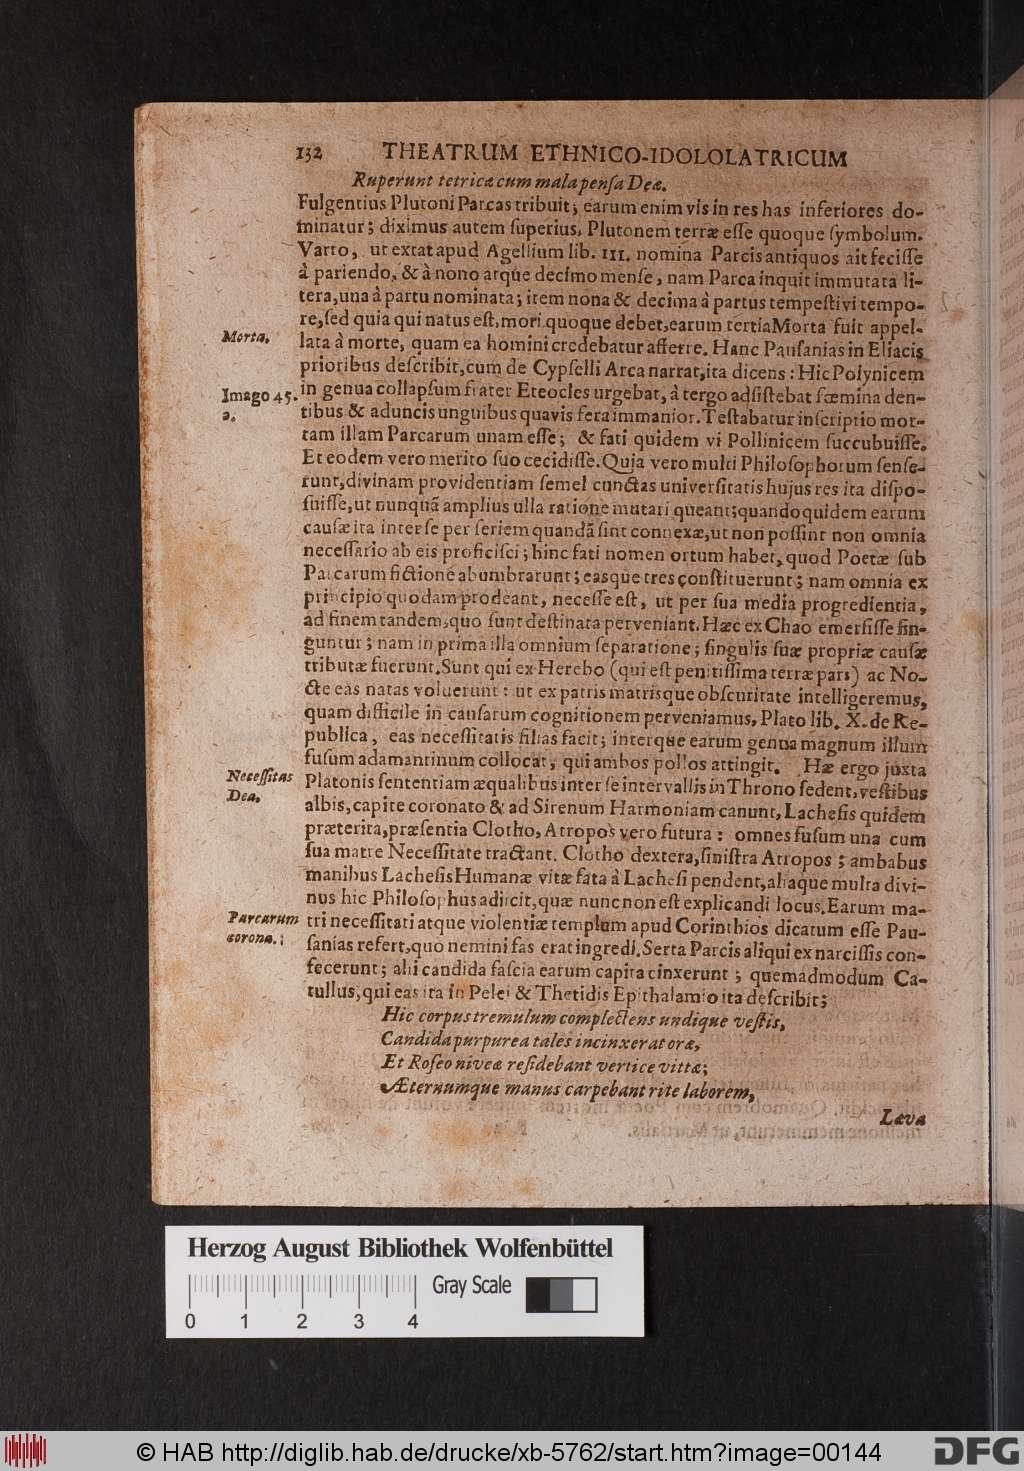 132 THEATRUM ETHNICO-IDOLOLATRICUM
Ruperunt tetricæ cum mala penſa Deæ.
Fulgentius Plutoni Parcas tribuit; earum enim vis in res has inferiores do-
minatur; diximus autem ſuperius, Plutonem terræ eſſe quoque ſymbolum.
Varro, ut extat apud Agellium lib. III. nomina Parcis antiquos ait feciſſe
à pariendo, & à nono atque decimo menſe, nam Parca inquit immutata li-
tera, una à partu nominata; item nona & decima à partus tempeſtivi tempo-
re, ſed quia qui natus eſt, mori quoque debet, earum tertia Morta fuit appel-
Morta.
lata à morte, quam ea homini credebatur afferre. Hanc Pauſanias in Eliacis
prioribus deſcribit, cum de Cypſelli Arca narrat, ita dicens: Hic Polynicem
Imago 45.
in genua collapſum frater Eteocles urgebat, à tergo adſiſtebat fœmina den-
a.
tibus & aduncis unguibus quavis fera immanior. Teſtabatur inſcriptio mor-
tam illam Parcarum unam eſſe; & fati quidem vi Pollinicem ſuccubuiſſe.
Et eodem vero merito ſuo cecidiſſe. Quia vero multi Philoſophorum ſenſe-
runt, divinam providentiam ſemel cunctas univerſitatis hujus res ita diſpo-
ſuiſſe, ut nunquã amplius ulla ratione mutari queant; quandoquidem earum
cauſæ ita inter ſe per ſeriem quandã ſint connexæ, ut non poſſint non omnia
neceſſario ab eis proficiſci; hinc fati nomen ortum habet, quod Poetæ ſub
Parcarum fictione abumbrarunt; easque tres conſtituerunt; nam omnia ex
principio quodam prodeant, neceſſe eſt, ut per ſua media progredientia,
ad finem tandem, quo ſunt deſtinata perveniant. Hæc ex Chao emerſiſſe fin-
guntur; nam in prima illa omnium ſeparatione; ſingulis ſuæ propriæ cauſæ
tributæ fuerunt. Sunt qui ex Herebo (qui eſt penitiſſima terræ pars) ac No-
cte eas natas voluerunt: ut ex patris matrisque obſcuritate intelligeremus,
quam difficile in cauſarum cognitionem perveniamus, Plato lib. X. de Re-
publica, eas neceſſitatis filias facit; interque earum genua magnum illum
fuſum adamantinum collocat; qui ambos pollos attingit. Hæ ergo juxta
Neceſſitas
Platonis ſententiam æqualibus inter ſe intervallis in Throno ſedent, veſtibus
Dea.
albis, capite coronato & ad Sirenum Harmoniam canunt, Lacheſis quidem
præterita, præſentia Clotho, Atropos vero futura: omnes fuſum una cum
ſua matre Neceſſitate tractant. Clotho dextera, ſiniſtra Atropos; ambabus
manibus Lacheſis Humanæ vitæ fata à Lacheſi pendent, aliaque multa divi-
nus hic Philoſophus adiicit, quæ nunc non eſt explicandi locus. Earum ma-
Parcarum
tri neceſſitati atque violentiæ templum apud Corinthios dicatum eſſe Pau-
corona.
ſanias refert, quo nemini fas erat ingredi. Serta Parcis aliqui ex narciſſis con-
fecerunt; alii candida faſcia earum capita cinxerunt; quemadmodum Ca-
tullus, qui eas ita in Pelei & Thetidis Epithalamio ita deſcribit;
Hic corpus tremulum complectens undique veſtis,
Candida purpurea tales incinxerat oræ,
Et Roſeo niveæ reſidebant vertice vittæ;
Æternumque manus carpebant rite laborem,
Læva
Herzog August Bibliothek Wolfenbüttel
Gray Scale
0 1 2 3 4
© HAB http://diglib.hab.de/drucke/xb-5762/start.htm?image=00144
DFG